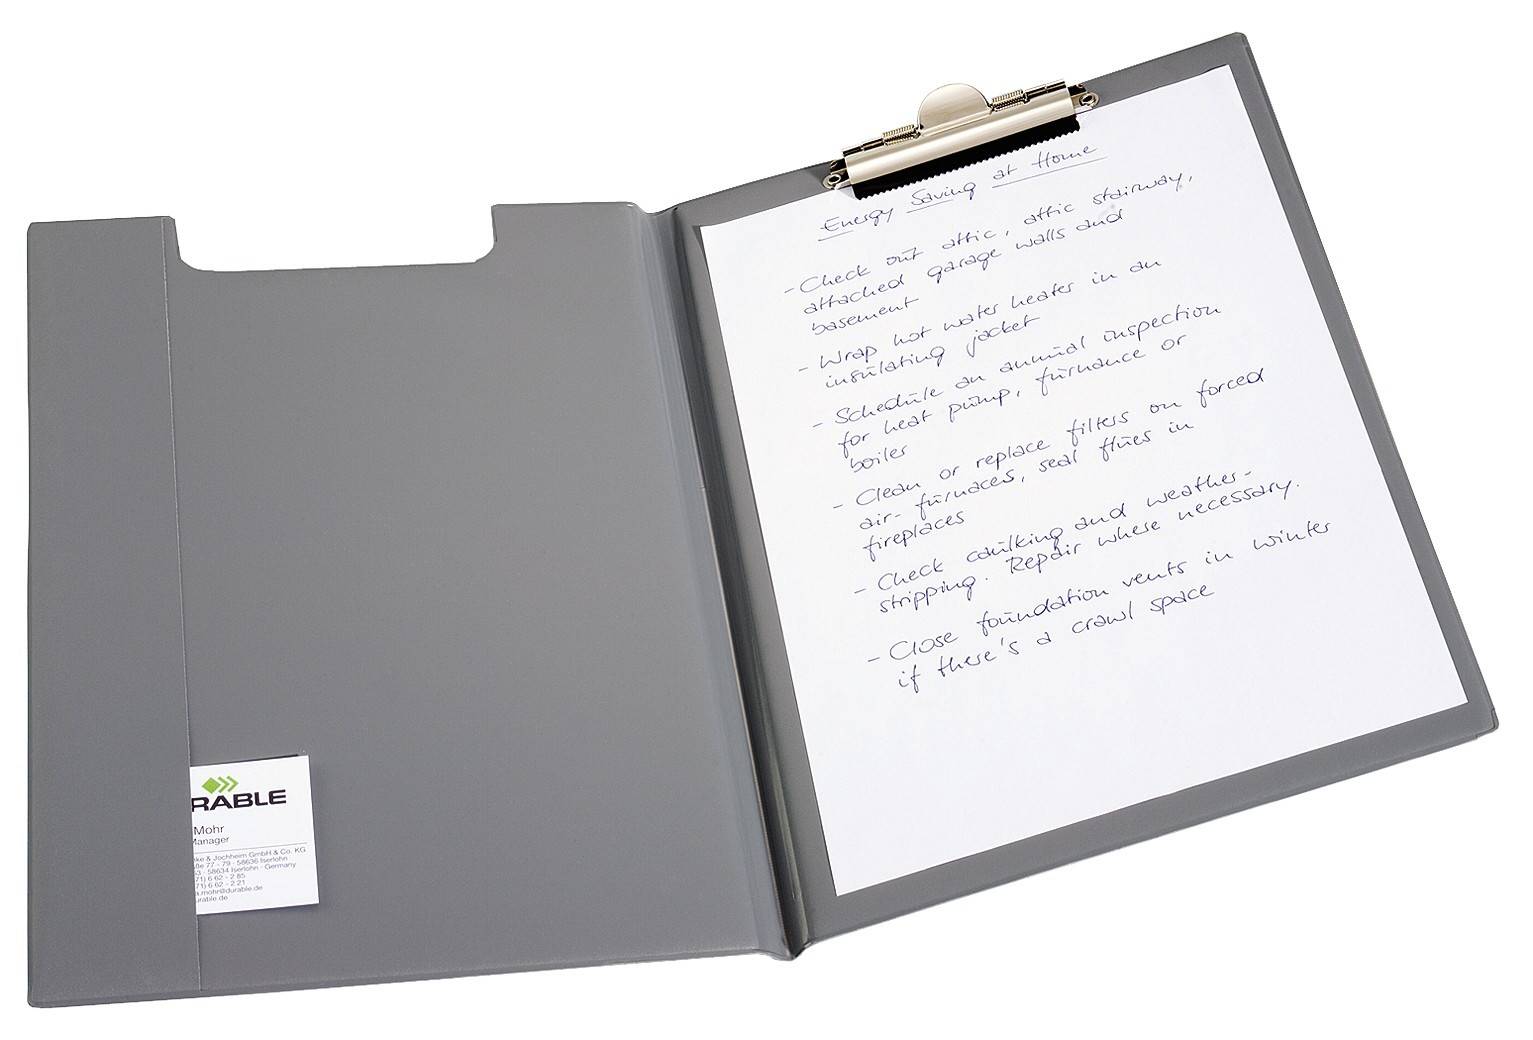 Energy Saving at Home
- Check out attic, attic stairway,
attached garage walls and
basement
- Wrap hot water heater in an
insulating jacket
- Schedule an annual inspection
for heat pump, furnance or
boiler
- Clean or replace filters on forced
air-furnaces, seal flues in
fireplaces
- Check caulking and weather-
stripping. Repair where necessary.
- Close foundation vents in winter
if there's a crawl space
RABLE
Mohr
Manager
ke & Jochheim GmbH & Co. KG
ße 77 - 79 · 58636 Iserlohn
53 · 58634 Iserlohn · Germany
71) 6 62 - 2 85
71) 6 62 - 2 21
a.mohr@durable.de
urable.de